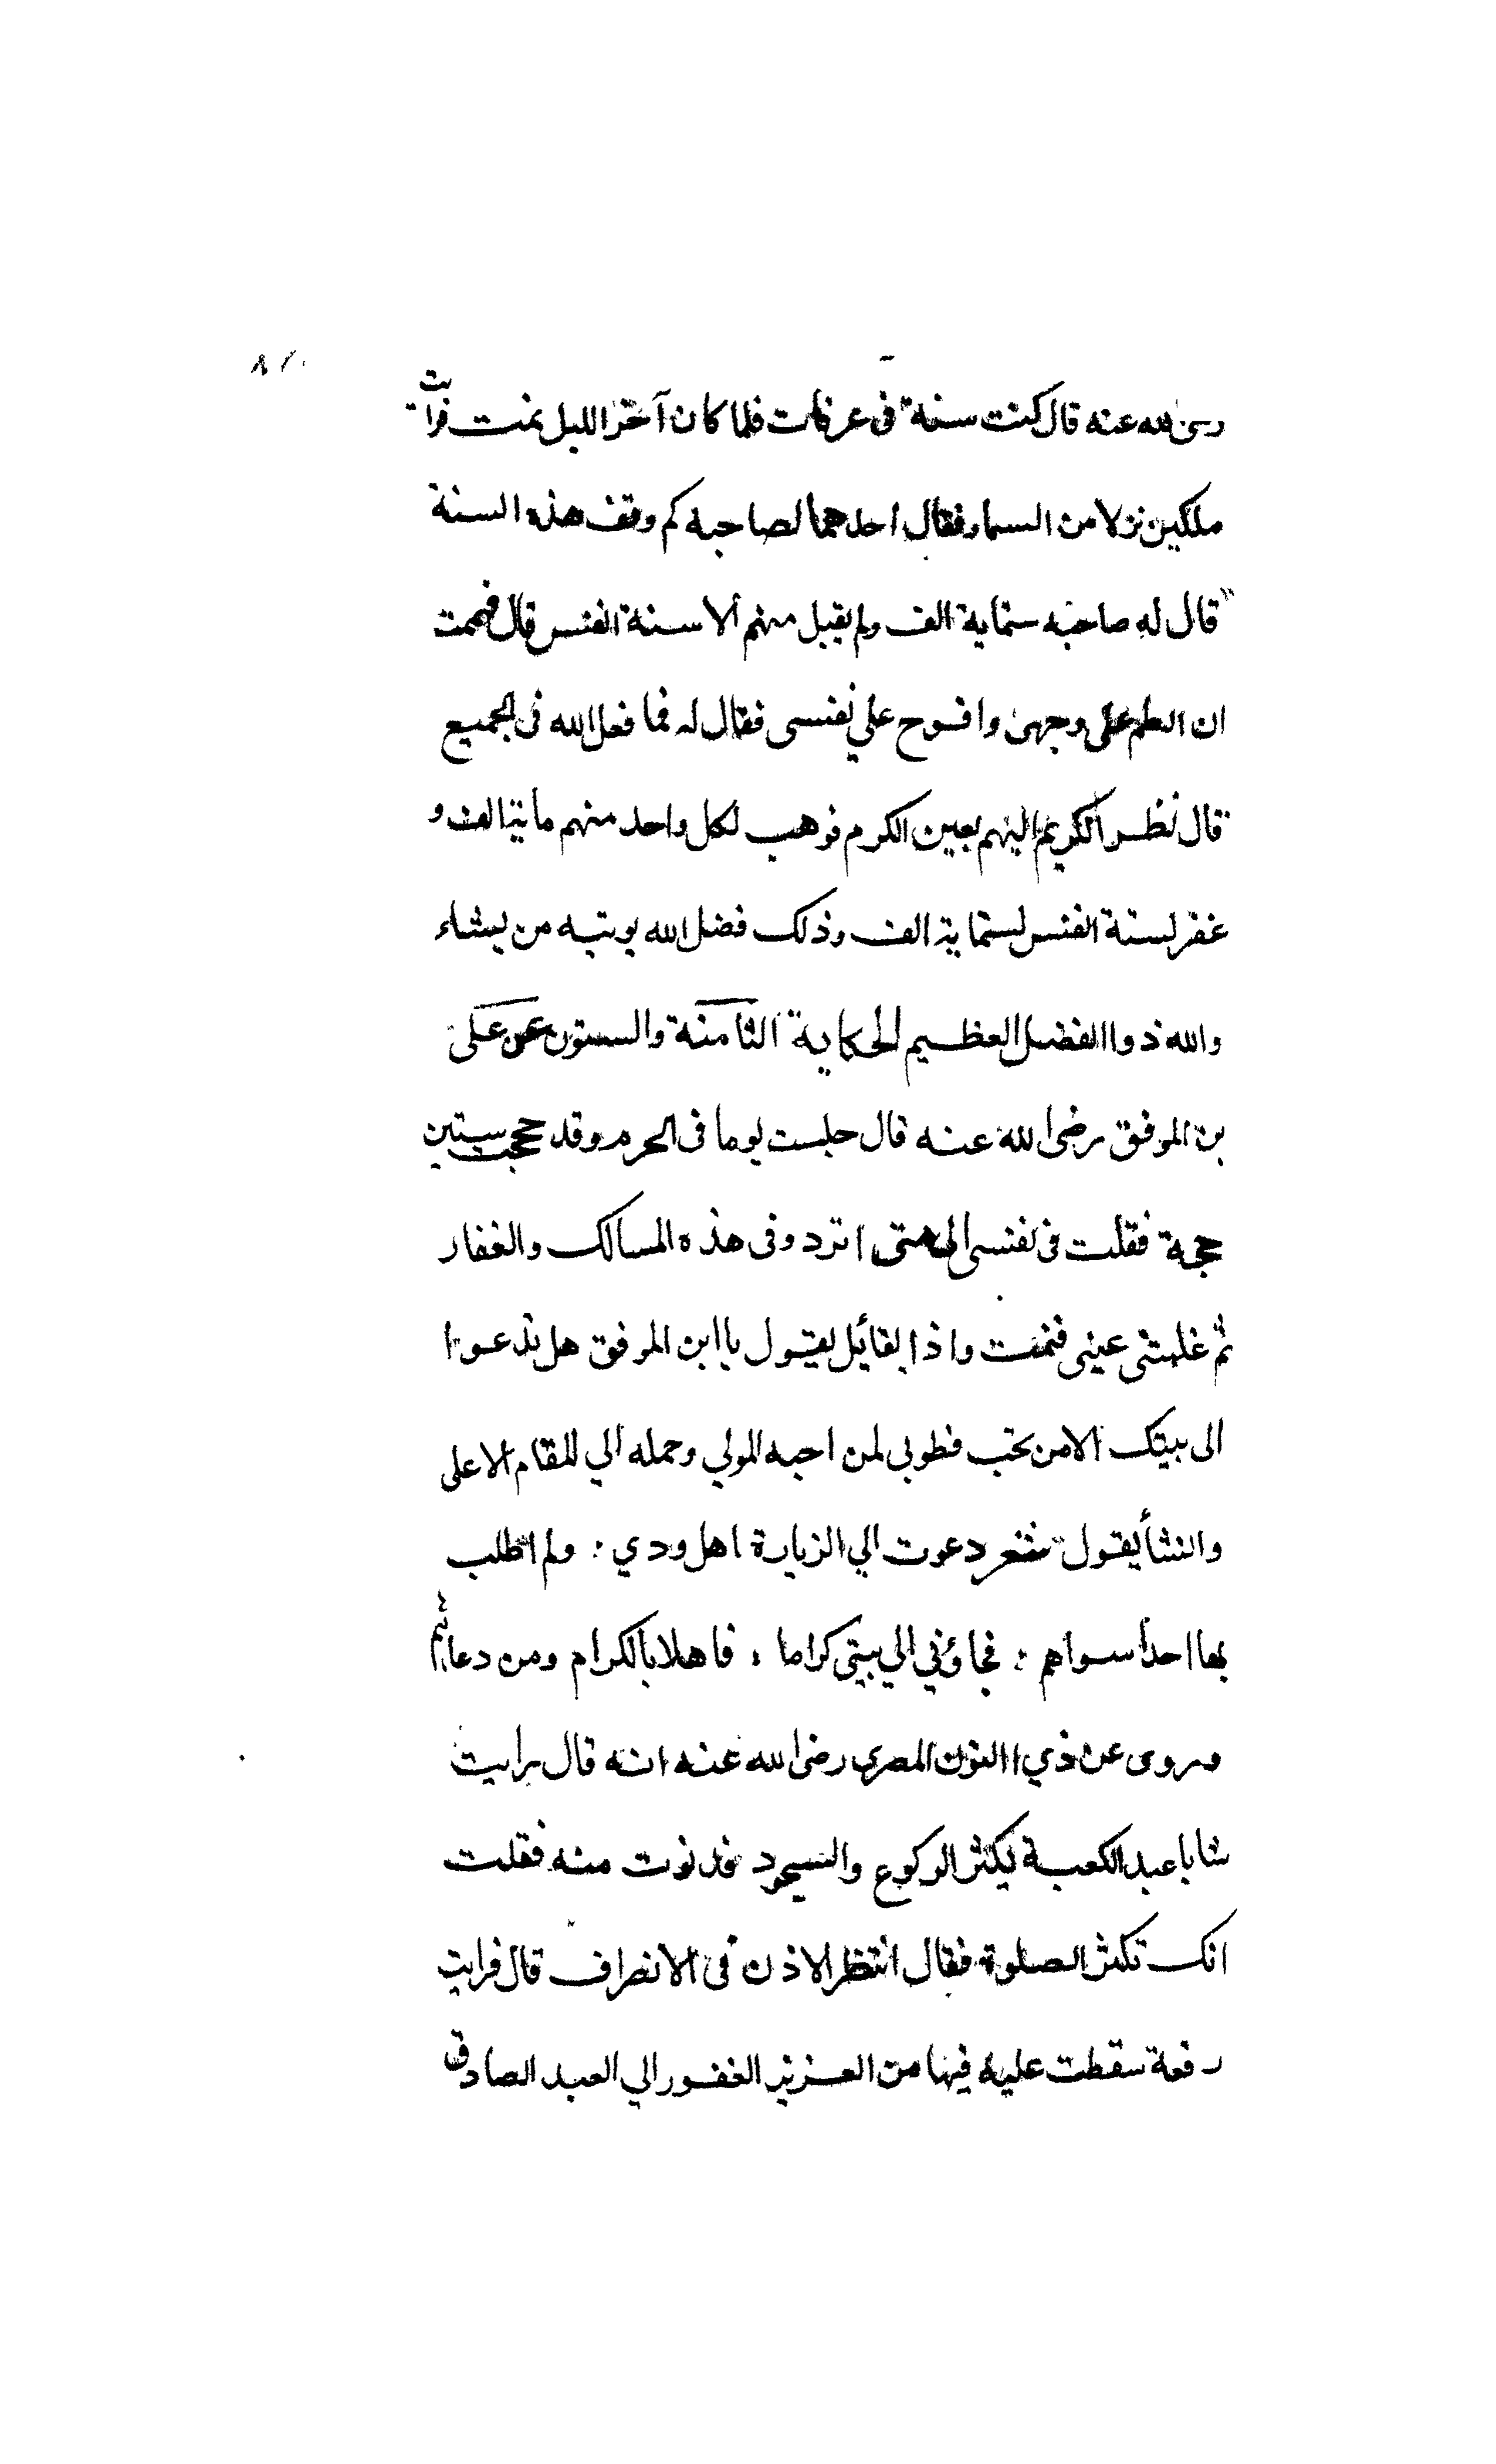 رضى الله عنه قال كنت سنة فى عرفات فلما كان آخر الليل نمت فرايت
ملكين نزلا من السماء فقال احدهما لصاحبه كم وقف هذه السنة
قال له صاحبه ستماية الف ولم يقبل منهم الا ستة انفس قال فهممت
ان الطم على وجهى وانوح علي نفسى فقال له فما فعل الله فى الجميع
قال نظر الكريم اليهم بعين الكرم فوهب لكل واحد منهم ماية الف و
غفر لستة انفس لستماية الف وذلك فضل الله يوتيه من يشاء
والله ذوا الفضل العظيم الحكاية الثامنة والستون عن على
بن الموفق رضى الله عنه قال جلست يوما فى الحرم وقد حججت ستين
حجة فقلت فى نفسى الى متى اتردد فى هذه المسالك والقفار
ثم غلبتنى عينى فنمت واذا بقائل يقول يا ابن الموفق هل تدعوا
الى بيتك الا من تحب فطوبى لمن احبه المولي وحمله الي المقام الاعلى
وانشأ يقول شعر دعوت الي الزيارة اهل ودي : ولم اطلب
بها احدا سواهم : فجاؤني الي بيتى كراما : فاهلا بالكرام ومن دعاهم
وروى عن ذي النون المصرى رضى الله عنه انه قال رايت
شابا عند الكعبة يكثر الركوع والسجود فدنوت منه فقلت
انك تكثر الصلوة فقال انتظر الاذن فى الانصراف قال فرايت
رقعة سقطت عليه فيها من العزيز الغفور الي العبد الصادق